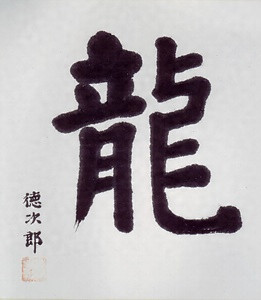 龍
徳次郎